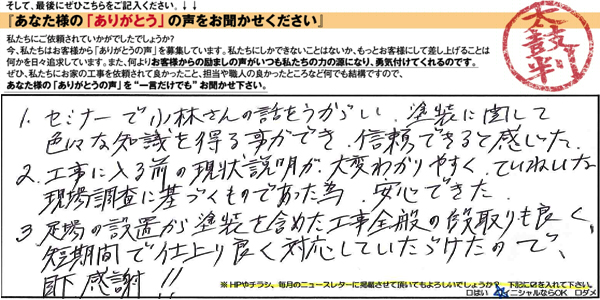 そして、最後にぜひこちらをご記入ください。↓↓
『あなた様の「ありがとう」の声をお聞かせください』
私たちにご依頼されていかがでしたでしょうか?
今、私たちはお客様から「ありがとうの声」を募集しています。私たちにしかできないことはないか、もっとお客様にして差し上げることは
何かを日々追求しています。また、何よりお客様からの励ましの声がいつも私たちの力の源になり、勇気付けてくれるのです。
ぜひ、私たちにお家の工事を依頼されて良かったこと、担当や職人の良かったところなど何でも結構ですので、
あなた様の「ありがとうの声」を“一言だけでも”お聞かせ下さい。
太鼓判
1. セミナーで小林さんの話をうかがい、塗装に関して
色々な知識を得る事ができ、信頼できると感じた。
2. 工事に入る前の現状説明が、大変わかりやすく、ていねいな
現場調査に基づくものであった為、安心できた。
3 足場の設置から塗装を含めた工事全般の段取りも良く、
短期間で仕上り良く対応していただけたので、
目下 感謝!!
※HPやチラシ、毎月のニュースレターに掲載させて頂いてもよろしいでしょうか? 下記に☑を入れて下さい。
□はい ニシャルならOK □ダメ